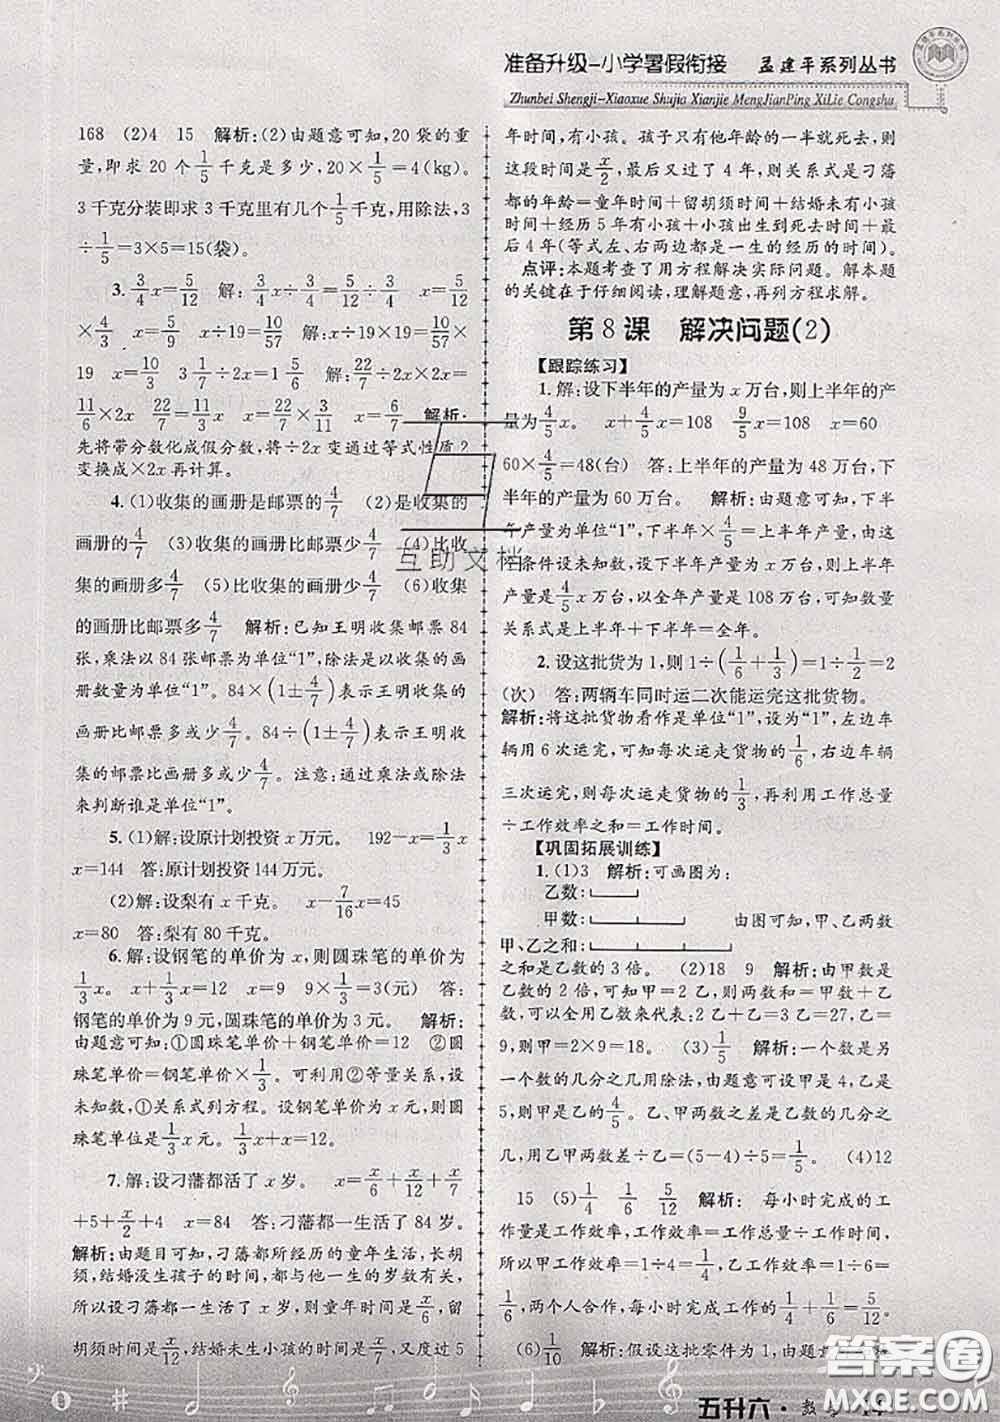 准备升级-小学暑假衔接 孟建平系列丛书
Zhunbei Shengji-Xiaoxue Shujia Xianjie MengJianPing XiLie Congshu
168 (2)4 15 解析:(2)由题意可知,20袋的重
量,即求 20 个 1/5 千克是多少,20×1/5=4(kg)。
3千克分装即求3千克里有几个1/5千克,用除法,3
÷1/5=3×5=15(袋)。
3. 3/4 x=5/12 解: 3/4 x÷3/4=5/12÷3/4 x=5/12
×4/3 x=5/9 x÷19=10/57 解:x÷19×19=10/57×
19 x=10/3 3 1/7÷2x=1 5/6 解: 22/7÷2x×2x=
11/6×2x 22/7=11/3 x x=22/7×3/11 x=6/7 解析:
先将带分数化成假分数,将÷2x变通过等式性质2
变换成×2x再计算。
4.(1)收集的画册是邮票的4/7 (2)是收集的
画册的4/7 (3)收集的画册比邮票少4/7 (4)比收
集的画册多4/7 (5)比收集的画册少4/7 (6)收集
的画册比邮票多4/7 解析:已知王明收集邮票84
张,乘法以84张邮票为单位“1”,除法是以收集的画
册数量为单位“1”。84×(1±4/7)表示王明收集的
画册比邮票多或少4/7。84÷(1±4/7)表示王明收
集的邮票比画册多或少4/7。注意:通过乘法或除法
来判断谁是单位“1”。
5.(1)解:设原计划投资x万元。 192-x=1/3 x
x=144 答:原计划投资144万元。
(2)解:设梨有x千克。 x-7/16 x=45
x=80 答:梨有80千克。
6.解:设钢笔的单价为x,则圆珠笔的单价为
1/3 x。 x+1/3 x=12 x=9 9×1/3=3(元) 答:
钢笔的单价为9元,圆珠笔的单价为3元。 解析:
由题意可知:①圆珠笔单价+钢笔单价=12 ②圆
珠笔单价=钢笔单价×1/3。可利用②等量关系,设
未知数,①关系式列方程。设钢笔单价为x元,则圆
珠笔单位是1/3 x元。1/3 x+x=12。
7.解:设刁藩都活了x岁。 x=x/6+x/12+x/7
+5+x/2+4 x=84 答:刁藩都一生活了84岁。
解析:由题目可知,刁藩都所经历的童年生活,长胡
须,结婚没生孩子的时间,都与他的岁数有关系,
所以设刁藩都一生活了x岁,则童年时间是x/6,留
胡须时间x/12,结婚未生小孩时间是x/7,又度过5
年时间,有小孩。孩子只有他年龄的一半就死去,则
这段时间是x/2,而又过了4年,他死去。关系是刁藩
都的年龄=童年时间+留胡须时间+结婚未有小孩
时间+经历5年有小孩+小孩出生到死去时间+最
后4年(等式左、右两边都是一生的经历的时间)。
点评:本题考查了用方程解决实际问题。解本题
的关键在于仔细阅读,理解题意,再列方程求解。
第8课 解决问题(2)
【跟踪练习】
1.解:设下半年的产量为x万台,则上半年的产
量为4/5 x。 x+4/5 x=108 9/5 x=108 x=60
60×4/5=48(台) 答:上半年的产量为48万台,下
半年的产量为60万台。 解析:由题意可知,下半
年产量为单位“1”,下半年×4/5=上半年产量,由
条件设未知数,下半年的产量为x万台,则上半年
产量是4/5 x万台,以全年产量是108万台,可知数量
关系式是上半年+下半年=全年。
2.设这批货为1,则1÷(1/6+1/3)=1÷1/2=2
(次) 答:两辆车同时运二次能运完这批货物。
解析:将这批货物看作是单位“1”,设为“1”,左边车
辆用6次运完,可知每次运走货物的1/6,右边车辆
三次运完,则每次运走货物的1/3,再利用工作总量
÷工作效率之和=工作时间。
【巩固拓展训练】
1.(1)3 解析:可画图为:
乙数:
甲数: 由图可知,甲、乙两数
甲、乙之和:
之和是乙数的3倍。 (2)18 9 解析:由甲数是
乙数的2倍,可知,则两数和=27=甲数+乙
数,可以以乙数来代表:2乙+乙=27,3乙=27,乙=
9,则甲=2×9=18。 (3)1/5 解析:一个数是另
一个数的几分之几用除法,由题意可得甲÷乙=4÷
5,则甲是乙的4/5。乙、甲两数差是乙数的几分之
几,用乙甲两数差÷乙=(5-4)÷5=1/5。 (4)12
15 (5)1/4 1/6 5/12 解析: 每小时完成的工
作量是工作效率,工作效率=工作总量÷工作时间,
所以甲的工作效率=1÷4=1/4,乙的工作效率=1÷6=
1/6,两个人合作,每小时完成工作的1/4+1/6=5/12。
(6)1/10 解析:假设这批零件为1,由题意
五升六·数学
互助文档
答案圈
MXQE.COM